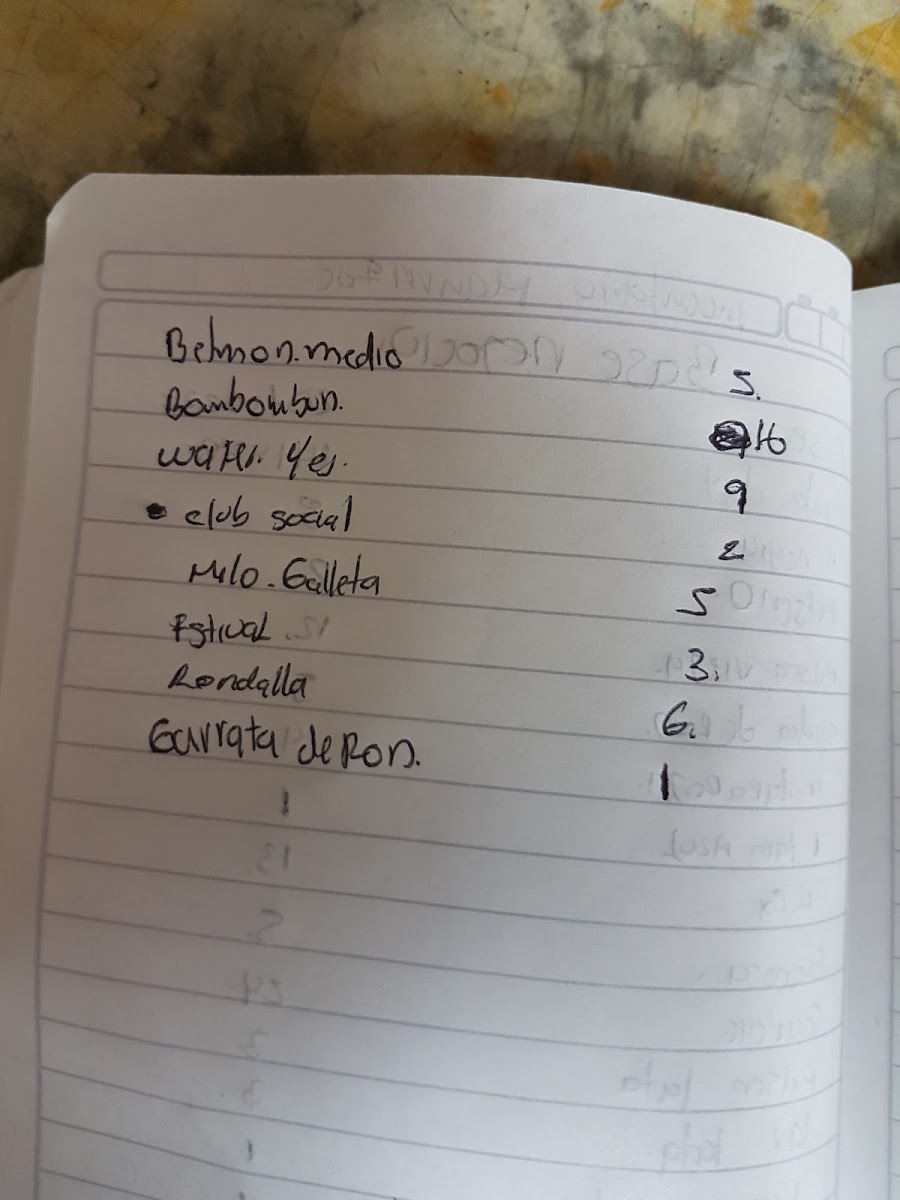 Belmon.medio 5.
Bombombun. 16
water. Yes. 9
• club social 2
Milo. Galleta 5
Festival. 3.
Rondalla 6.
Garrata de Ron. 1